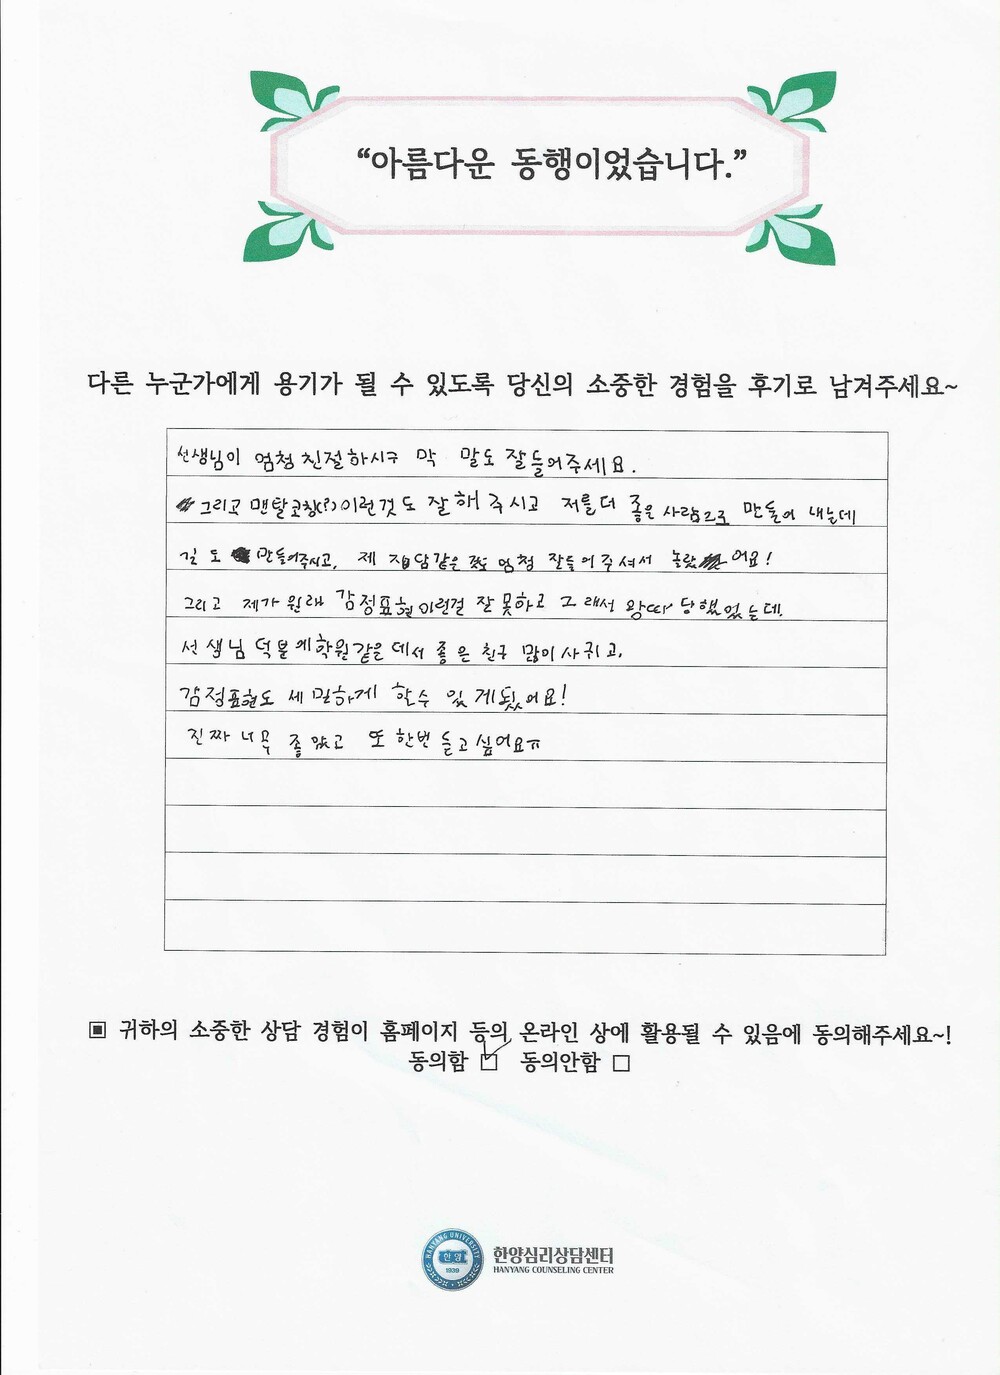 “아름다운 동행이었습니다.”
다른 누군가에게 용기가 될 수 있도록 당신의 소중한 경험을 후기로 남겨주세요~
선생님이 엄청 친절하시구 막 말도 잘들어주세요.
그리고 맨탈코칭(?)이런것도 잘해 주시고 저를더 좋은 사람으로 만들어 내는데
길 도 만들어주시고, 제 잡담같은 것도 엄청 잘들어주셔서 놀랐어요!
그리고 제가 원래 감정표현이런걸 잘 못하고 그래서 왕따 당했었는데.
선생님 덕분에 학원같은데서 좋은 친구 많이사귀고,
감정표현도 세밀하게 할수 있게됬어요!
진짜 너무 좋았고 또 한번 듣고싶어요ㅠ
▣ 귀하의 소중한 상담 경험이 홈페이지 등의 온라인 상에 활용될 수 있음에 동의해주세요~!
동의함 ☑ 동의안함 □
HANYANG UNIVERSITY
한양
1939
한양심리상담센터
HANYANG COUNSELING CENTER